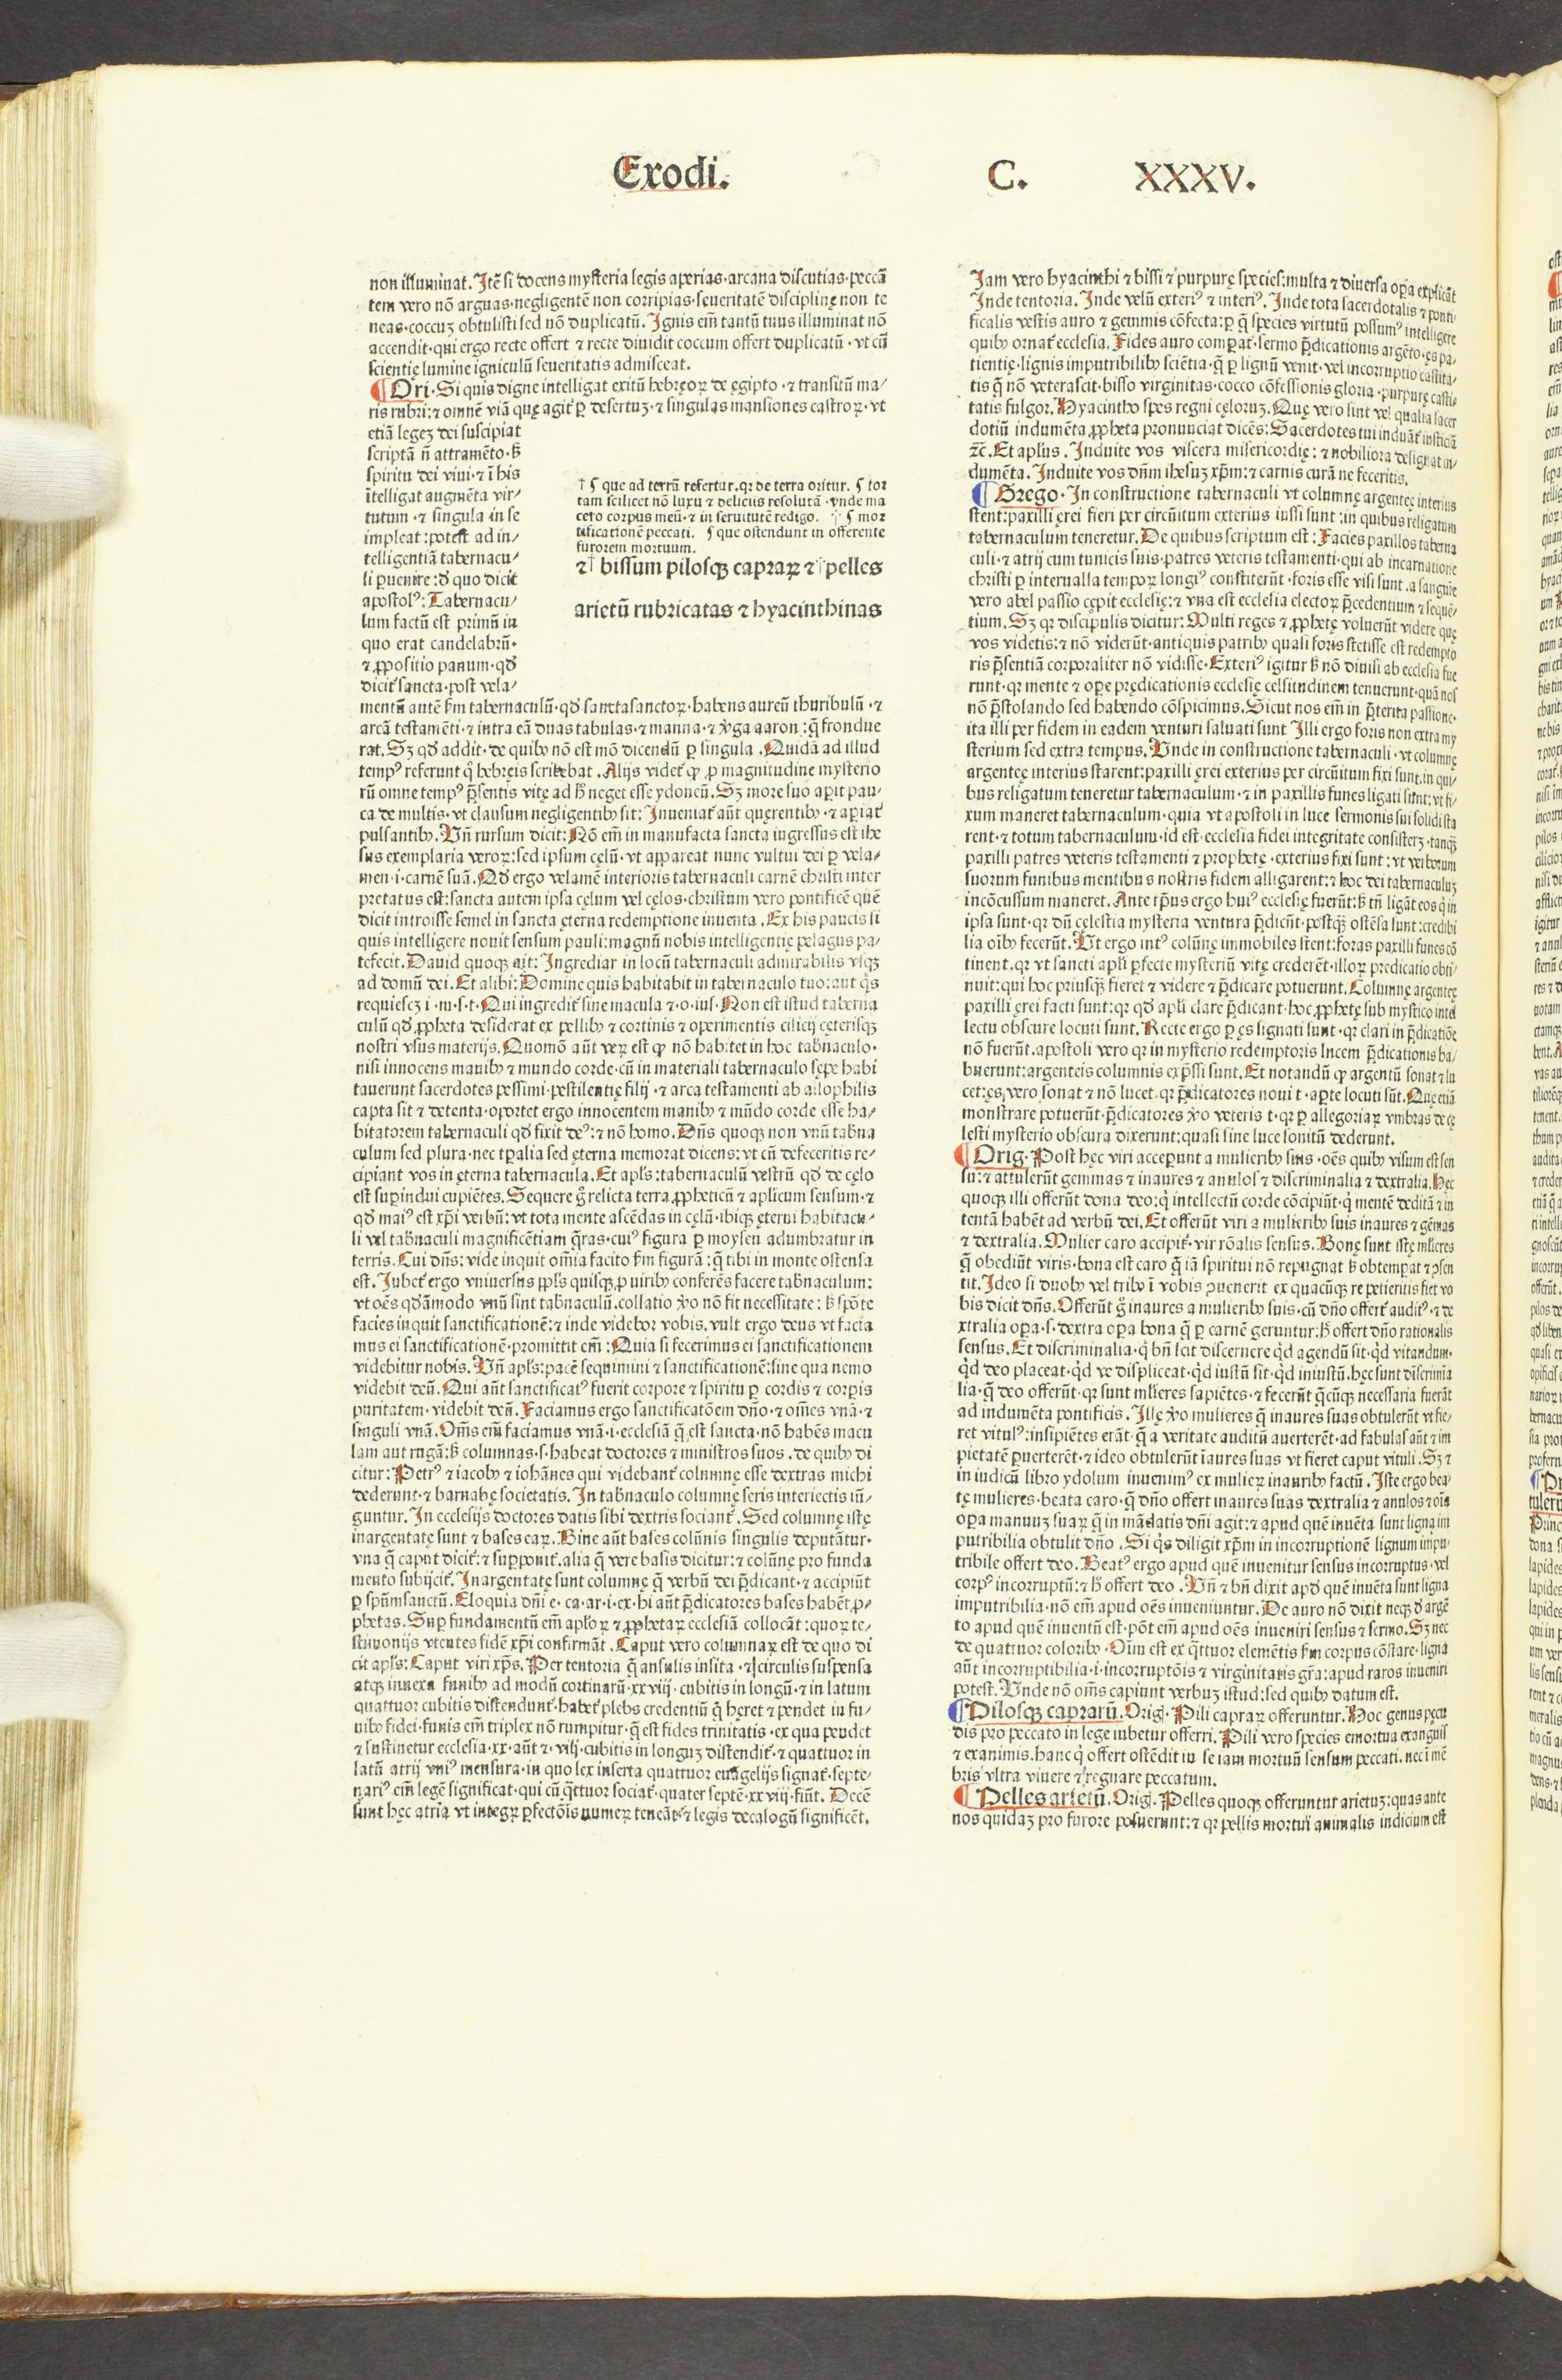 Exodi. C. XXXV.
non illuminat. Itē si docens mysteria legis aperias·arcana discutias·peccā
tem vero nō arguas·negligentē non corripias·seueritatē disciplinę non te
neas·coccuꝫ obtulisti sed nō duplicatū. Ignis em̄ tantū tuus illuminat nō
accendit·qui ergo recte offert ⁊ recte diuidit coccum offert duplicatū·vt cū
scientię lumine igniculū seueritatis admisceat.
¶ Ori·Si quis digne intelligat exitū hebręoꝝ de ęgipto·⁊ transitū ma/
ris rubri:⁊ omnē viā quę agit᷑ ꝑ desertuꝫ·⁊ singulas mansiones castroꝝ·vt
etiā legeꝫ dei suscipiat
scriptā n̄ attramēto·ẜ
spiritu dei viui·⁊ ī his
ītelligat augmēta vir/
tutum·⁊ singula in se
impleat:potest ad in/
telligentiā tabernacu/
li ꝑuenire:ď quo dicit
apostolꝰ:Tabernacu/
lum factū est primū in
quo erat candelabrū·
⁊ ꝓpositio panum·qď
dicit᷑ sancta·post vela/
† ¶ que ad terrā refertur.qꝛ de terra oritur. ¶ tor
tam scilicet nō luxu ⁊ deliciis resolutā·vnde ma
cero corpus meū·⁊ in seruitutē redigo. † ¶ mor
tificationē peccati. ¶ que ostendunt in offerente
furorem mortuum.
⁊† bissum pilosqꝫ capraꝝ ⁊†pelles
arietū rubricatas ⁊ hyacinthinas
mentū autē ẜm tabernaculū·qď sancta sanctoꝝ·habens aureū thuribulū·⁊
arcā testamēti·⁊ intra eā duas tabulas·⁊ manna·⁊ v̓ga aaron:q̄ frondue
rat. Sꝫ qď addit·de quibꝰ nō est mō dicendū ꝑ singula. Quidā ad illud
tempꝰ referunt q̓ hebręis scribebat. Alijs videt᷑ ꝙ ꝓ magnitudine mysterio
rū omne tempꝰ p̄sentis vitę ad ẖ neget esse ydoneū. Sꝫ more suo aꝑit pau/
ca de multis·vt clausum negligentibꝰ sit: Inueniat᷑ aūt quęrentibꝰ·⁊ aꝑiat᷑
pulsantibꝰ. Vn̄ rursum dicit: Nō em̄ in manufacta sancta ingressus est ihe
sus exemplaria veroꝝ:sed ipsum cęlū·vt appareat nunc vultui dei ꝑ vela/
men·i·carnē suā. Qď ergo velamē interioris tabernaculi carnē christi inter
pretatus est:sancta autem ipsa cęlum vel cęlos·christum vero pontificē quē
dicit introisse semel in sancta ęterna redemptione inuenta. Ex his paucis si
quis intelligere nouit sensum pauli:magnū nobis intelligentię pelagus pa/
tefecit. Dauid quoqꝫ ait: Ingrediar in locū tabernaculi admirabilis vsqꝫ
ad domū dei. Et alibi: Domine quis habitabit in tabernaculo tuo:aut q̓s
requiescꝫ i·m·s·t·Qui ingredit᷑ sine macula ⁊·o·ius·Non est istud taberna
culū qď ꝓpheta desiderat ex pellibꝰ ⁊ cortinis ⁊ operimentis cilicij cęterisqꝫ
nostri vsus materijs. Quomō aūt veꝝ est ꝙ nō habitet in hoc tabn̄aculo·
nisi innocens manibꝰ ⁊ mundo corde·cū in materiali tabernaculo sępe habi
tauerunt sacerdotes pessimi·pestilentię filij·⁊ arca testamenti ab allophilis
capta sit ⁊ detenta·oportet ergo innocentem manibꝰ ⁊ mūdo corde esse ha/
bitatorem tabernaculi qď fixit deꝰ:⁊ nō homo. Dn̄s quoqꝫ non vnū tabn̄a
culum sed plura·nec tꝑalia sed ęterna memorat dicens: vt cū defeceritis re/
cipiant vos in ęterna tabernacula. Et apl̄s:tabernaculū vestrū qď de cęlo
est suꝑindui cupiētes. Sequere g̊ relicta terra ꝓpheticū ⁊ apl̄icum sensum·⁊
qď maiꝰ est xp̄i verbū:vt tota mente ascēdas in cęlū·ibiqꝫ ęterni habitacu/
li vel tabn̄aculi magnificētiam q̄ras·cuiꝰ figura ꝑ moysen adumbratur in
terris. Cui dn̄s: vide inquit om̄ia facito ẜm figurā:q̄ tibi in monte ostensa
est. Iubet᷑ ergo vniuersus ppl̄s quisqꝫ ꝓ viribꝰ conferēs facere tabn̄aculum:
vt oēs qďāmodo vnū sint tabn̄aculū.collatio v̓o nō fit necessitate: ẜ spōte
facies inquit sanctificationē:⁊ inde videbor vobis.vult ergo deus vt facia
mus ei sanctificationē·promittit em̄: Quia si fecerimus ei sanctificationem
videbitur nobis. Vn̄ apl̄s:pacē sequimini ⁊ sanctificationē:sine qua nemo
videbit deū. Qui aūt sanctificatꝰ fuerit corpore ⁊ spiritu ꝑ cordis ⁊ corꝑis
puritatem·videbit deū. Faciamus ergo sanctificatōem dn̄o·⁊ om̄es vnā·⁊
singuli vnā. Om̄s em̄ faciamus vnā·i·ecclesiā q̄ est sancta·nō habēs macu
lam aut rugā:ẜ columnas·s·habeat doctores ⁊ ministros suos·de quibꝰ di
citur: Petrꝰ ⁊ iacobꝰ ⁊ iohānes qui videbant᷑ columnę esse dextras michi
dederunt·⁊ barnabę societatis. In tabn̄aculo columnę seris interiectis iū/
guntur. In ecclesijs doctores datis sibi dextris sociant᷑. Sed columnę istę
inargentatę sunt ⁊ bases eaꝝ. Bine aūt bases colūnis singulis deputātur·
vna q̄ caput dicit᷑:⁊ suꝑponit᷑.alia q̄ vere basis dicitur:⁊ colūnę pro funda
mento subijcit᷑. Inargentatę sunt columnę q̄ verbū dei p̄dicant·⁊ accipiūt
ꝑ spm̄sanctū. Eloquia dn̄i e·ca·ar·i·ex·hi aūt p̄dicatores bases habēt ꝓ/
phetas. Suꝑ fundamentū em̄ apl̄oꝝ ⁊ ꝓphetaꝝ ecclesiā collocāt:quoꝝ te/
stimonijs vtentes fidē xp̄i confirmāt. Caput vero columnaꝝ est de quo di
cit apl̄s: Caput viri xp̄s. Per tentoria q̄ ansulis insita·⁊ circulis suspensa
atqꝫ innexa funibꝰ ad modū cortinarū·xxviij·cubitis in longū·⁊ in latum
quattuor cubitis distendunt᷑·habet᷑ plebs credentiū q̄ hęret ⁊ pendet in fu/
nibꝰ fidei·funis em̄ triplex nō rumpitur·q̄ est fides trinitatis·ex qua pendet
⁊ sustinetur ecclesia·xx·aūt ⁊·viij·cubitis in longuꝫ distendit᷑·⁊ quattuor in
latū atrij vniꝰ mensura·in quo lex inserta quattuor euāgelijs signat᷑·septe/
nariꝰ em̄ legē significat·qui cū q̄ttuor sociat᷑·quater septē·xxviij·fiūt. Decē
sunt hęc atria vt integꝝ ꝑfectōis numeꝝ teneāt·⁊ legis decalogū significēt.
Iam vero hyacinthi ⁊ bissi ⁊ purpurę species:multa ⁊ diuersa oꝑa explicāt
Inde tentoria. Inde velū exteriꝰ ⁊ interiꝰ. Inde tota sacerdotalis ⁊ ponti/
ficalis vestis auro ⁊ gemmis cōfecta:ꝑ q̄ species virtutū possumꝰ intelligere
quibꝰ ornat᷑ ecclesia. Fides auro comꝑat·sermo p̄dicationis argēto·ęs pa/
tientię·lignis imputribilibꝰ sciētia·q̄ ꝑ lignū venit·vel incorruptio castita/
tis q̄ nō veterascit·bisso virginitas·cocco cōfessionis gloria·purpurę casti/
tatis fulgor. Hyacintho spes regni cęloruꝫ. Quę vero sint vel qualia sacer
dotiū indumēta ꝓpheta pronunciat dicēs: Sacerdotes tui induāt᷑ iusticiā
⁊c̄. Et apl̄us. Induite vos viscera misericordię: ⁊ nobiliora designat in/
dumēta. Induite vos dn̄m ihesuꝫ xp̄m:⁊ carnis curā ne feceritis.
¶ Grego·In constructione tabernaculi vt columnę argentę interius
stent:paxilli ęrei fieri per circūitum exterius iussi sunt:in quibus religatum
tabernaculum teneretur. De quibus scriptum est: Facies paxillos taberna
culi·⁊ atrij cum tunicis suis·patres veteris testamenti·qui ab incarnatione
christi ꝑ interualla tempoꝝ longiꝰ constiterūt·foris esse visi sunt·a sanguīe
vero abel passio cępit ecclesię:⁊ vna est ecclesia electoꝝ p̄cedentium ⁊ sequē/
tium. Sꝫ qꝛ discipulis dicitur: Multi reges ⁊ ꝓphetę voluerūt videre quę
vos videtis:⁊ nō viderūt·antiquis patribꝰ quasi foris stetisse est redempto
ris p̄sentiā corporaliter nō vidisse·Exteriꝰ igitur ẜ nō diuisi ab ecclesia fue
runt·qꝛ mente ⁊ oꝑe prędicationis ecclesię celsitudinem tenuerunt·quā nos
nō p̄stolando sed habendo cōspicimus. Sicut nos em̄ in p̄terita passione·
ita illi per fidem in eadem venturi saluati sunt Illi ergo foris non extra my
sterium sed extra tempus. Vnde in constructione tabernaculi·vt columnę
argentę interius starent:paxilli ęrei exterius per circūitum fixi sunt.in qui/
bus religatum teneretur tabernaculum·⁊ in paxillis funes ligati sunt:vt fi/
xum maneret tabernaculum·quia vt apostoli in luce sermonis sui solidi sta
rent·⁊ totum tabernaculum·id est·ecclesia fidei integritate consisterꝫ·tanqꝫ
paxilli patres veteris testamenti ⁊ prophetę·exterius fixi sunt:vt verborum
suorum funibus mentibus nostris fidem alligarent:⁊ hoc dei tabernaculuꝫ
incōcussum maneret. Ante tp̄us ergo huiꝰ ecclesię fuerūt:ẜ tn̄ ligāt eos q̓ in
ipsa sunt·qꝛ dū cęlestia mysteria ventura p̄dicūt·postqꝫ ostēsa sunt:credibi
lia oībꝰ fecerūt. Vt ergo intꝰ colūnę immobiles stent:foras paxilli funes cō
tinent.qꝛ vt sancti apl̄i ꝑfecte mysteriū vitę crederēt·illoꝝ predicatio obti/
nuit:qui hoc priusqꝫ fieret ⁊ videre ⁊ p̄dicare potuerunt. Columnę argentę
paxilli ęrei facti sunt:qꝛ qď apl̄i clare p̄dicant·hoc ꝓphetę sub mystico intel
lectu obscure locuti sunt. Recte ergo ꝑ ęs signati sunt·qꝛ clari in p̄dicatiōe
nō fuerūt.apostoli vero qꝛ in mysterio redemptoris lucem p̄dicationis ha/
buerunt:argenteis columnis exp̄ssi sunt. Et notandū ꝙ argentū sonat ⁊ lu
cet:ęs vero sonat ⁊ nō lucet.qꝛ p̄dicatores noui t·aꝑte locuti sūt. Quę etiā
monstrare potuerūt·p̄dicatores v̓o veteris t·qꝛ ꝑ allegoriaꝝ vmbras de cę
lesti mysterio obscura dixerunt:quasi sine luce sonitū dederunt.
¶ Orig·Post hęc viri acceperunt a mulieribꝰ suis·oēs quibꝰ visum est sen
su:⁊ attulerūt gemmas ⁊ inaures ⁊ anulos ⁊ discriminalia ⁊ dextralia. Hęc
quoqꝫ illi offerūt dona deo:q̓ intellectū corde cōcipiūt·q̓ mentē deditā ⁊ in
tentā habēt ad verbū dei. Et offerūt viri a mulieribꝰ suis inaures ⁊ gēmas
⁊ dextralia. Mulier caro accipit᷑·vir rōnalis sensus. Bonę sunt istę ml̄ieres
q̄ obediūt viris·bona est caro q̄ iā spiritui nō repugnat ẜ obtemꝑat ⁊ ꝯsen
tit. Ideo si duobꝰ vel tribꝰ ī vobis ꝯuenerit ex quacūqꝫ re petieritis fiet vo
bis dicit dn̄s. Offerūt g̊ inaures a mulieribꝰ suis·cū dn̄o offert᷑ auditꝰ·⁊ de
xtralia oꝑa·s·dextra oꝑa bona q̄ ꝑ carnē geruntur:ẖ offert dn̄o rationalis
sensus. Et discriminalia·q̓ bn̄ scit discernere q̓d agendū sit·q̓d vitandum·
q̓d deo placeat·q̓d ve displiceat·q̓d iustū sit·q̓d iniustū.hęc sunt discrimīa
lia·q̄ deo offerūt·qꝛ sunt ml̄ieres sapiētes·⁊ fecerūt q̄cūqꝫ necessaria fuerāt
ad indumēta pontificis. Illę v̓o mulieres q̄ inaures suas obtulerūt vt fie/
ret vitulꝰ:insipiētes erāt·q̄ a veritate auditū auerterēt·ad fabulas aūt ⁊ im
pietatē ꝑuerterēt·⁊ ideo obtulerūt īaures suas vt fieret caput vituli. Sꝫ ⁊
in iudicū libro ydolum inuenimꝰ ex mulieꝝ inauribꝰ factū. Iste ergo bea/
tę mulieres·beata caro·q̄ dn̄o offert inaures suas dextralia ⁊ anulos ⁊ oīa
oꝑa manuuꝫ suaꝝ q̄ in mādatis dn̄i agit:⁊ apud quē inuēta sunt ligna im
putribilia obtulit dn̄o. Si q̓s diligit xp̄m in incorruptionē lignum impu/
tribile offert deo. Beatꝰ ergo apud quē inuenitur sensus incorruptus·vel
corpꝰ incorruptū:⁊ ẖ offert deo. Vn̄ ⁊ bn̄ dixit apď quē inuēta sunt ligna
imputribilia·nō em̄ apud oēs inueniuntur. De auro nō dixit neqꝫ ď argē
to apud quē inuentū est·pōt em̄ apud oēs inueniri sensus ⁊ sermo. Sꝫ nec
de quattuor coloribꝰ·Oīm est ex q̄ttuor elemētis ẜm corpus cōstare·ligna
aūt incorruptibilia·i·incorruptōis ⁊ virginitatis gr̄a:apud raros inueniri
potest. Vnde nō om̄s capiunt verbuꝫ istud:sed quibꝰ datum est.
¶ Pilosqꝫ caprarū. Orig̊. Pili capraꝝ offeruntur. Hoc genus pecu
dis pro peccato in lege iubetur offerri. Pili vero species emortua exanguis
⁊ exanimis.hanc q̓ offert ostēdit in se iam mortuū sensum peccati.nec ī mē
bris vltra viuere ⁊ regnare peccatum.
¶ Pelles arietū. Orig̊. Pelles quoqꝫ offeruntur arietuꝫ:quas ante
nos quidaꝫ pro furore posuerunt:⁊ qꝛ pellis mortui animalis indicium est